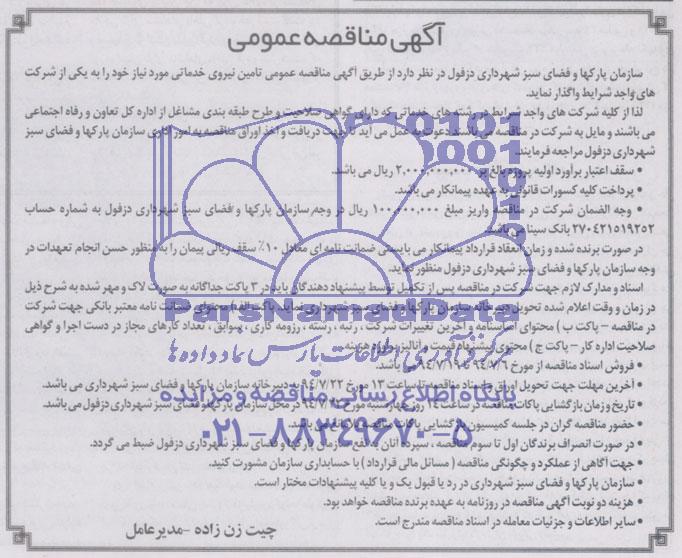 آگهی مناقصه عمومی
سازمان پارکها و فضای سبز شهرداری دزفول در نظر دارد از طریق آگهی مناقصه عمومی تامین نیروی خدماتی مورد نیاز خود را به یکی از شرکت
های واجد شرایط واگذار نماید.
لذا از کلیه شرکت های واجد شرایط در رشته های خدماتی که دارای گواهی صلاحیت و طرح طبقه بندی مشاغل از اداره کل تعاون و رفاه اجتماعی
می باشند و مایل به شرکت در مناقصه می باشند دعوت به عمل می آید تا جهت دریافت و اخذ اوراق مناقصه به امور اداری سازمان پارکها و فضای سبز
شهرداری دزفول مراجعه فرمایند.
• سقف اعتبار برآورد اولیه پروژه بالغ بر ۲,۰۰۰,۰۰۰,۰۰۰ ریال می باشد.
• پرداخت کلیه کسورات قانونی به عهده پیمانکار می باشد.
• وجه الضمان شرکت در مناقصه واریز مبلغ ۱۰۰,۰۰۰,۰۰۰ ریال در وجه سازمان پارکها و فضای سبز شهرداری دزفول به شماره حساب
۲۷۰۴۲۱۵۱۹۲۵۲ بانک سینا می باشد.
در صورت برنده شده و زمان انعقاد قرارداد پیمانکار می بایستی ضمانت نامه ای معادل ۱۰٪ سقف ریالی پیمان را به منظور حسن انجام تعهدات در
وجه سازمان پارکها و فضای سبز شهرداری دزفول منظور نماید.
اسناد و مدارک لازم جهت شرکت در مناقصه پس از تکمیل توسط پیشنهاد دهندگان باید در ۳ پاکت جداگانه به صورت لاک و مهر شده به شرح ذیل
در زمان و وقت اعلام شده تحویل دبیرخانه سازمان پارکها و فضای سبز شهرداری نماید. پاکت الف) محتوای ضمانت نامه معتبر بانکی جهت شرکت
در مناقصه – پاکت ب) محتوای اساسنامه و آخرین تغییرات شرکت، رتبه، رشته، رزومه کاری، سوابق، تعداد کارهای مجاز در دست اجرا و گواهی
صلاحیت اداره کار – پاکت ج) محتوی پیشنهاد قیمت و آنالیز موارد هزینه.
• فروش اسناد مناقصه از مورخ ۹۴/۷/۶ تا ۹۴/۷/۱۹ می باشد.
• آخرین مهلت جهت تحویل اوراق و اسناد مناقصه تا ساعت ۱۳ مورخ ۹۴/۷/۲۲ به دبیرخانه سازمان پارکها و فضای سبز شهرداری می باشد.
• تاریخ و زمان بازگشایی پاکات مناقصه در ساعت ۱۴ روز چهارشنبه مورخ در محل سازمان پارکها و فضای سبز شهرداری دزفول می باشد.
• حضور مناقصه گران در جلسه کمیسیون بازگشایی پاکات مناقصه می باشد.
• در صورت انصراف برندگان اول تا سوم مناقصه، سپرده آنان به نفع سازمان پارکها و فضای سبز شهرداری دزفول ضبط می گردد.
• جهت آگاهی از عملکرد و چگونگی مناقصه (مسائل مالی قرارداد) با حسابداری سازمان مشورت کنید.
• سازمان پارکها و فضای سبز شهرداری در رد یا قبول یک و یا کلیه پیشنهادات مختار است.
• هزینه دو نوبت آگهی مناقصه در روزنامه به عهده برنده مناقصه خواهد بود.
• سایر اطلاعات و جزئیات معامله در اسناد مناقصه مندرج است.
چیت زن زاده -مدیرعامل
ParsNamadData
مرکز فرآوری اطلاعات پارس نماد داده ها
پایگاه اطلاع رسانی مناقصه و مزایده
۰۲۱-۸۸۳۴۹۶۷۰-۵